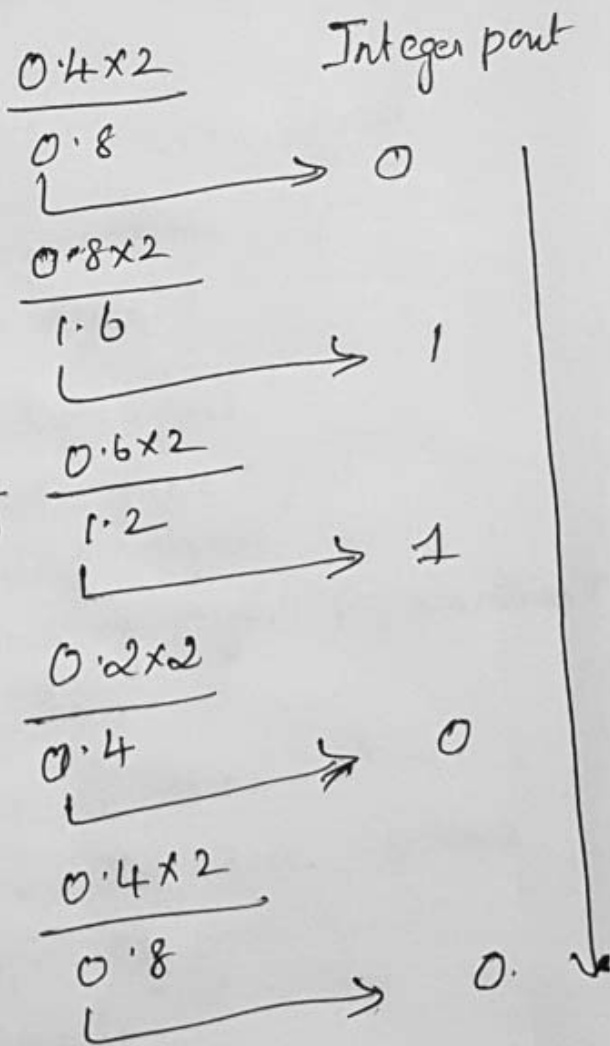 Integer part
0.4×2
0.8 → 0
0.8×2
1.6 → 1
0.6×2
1.2 → 1
0.2×2
0.4 → 0
0.4×2
0.8 → 0.